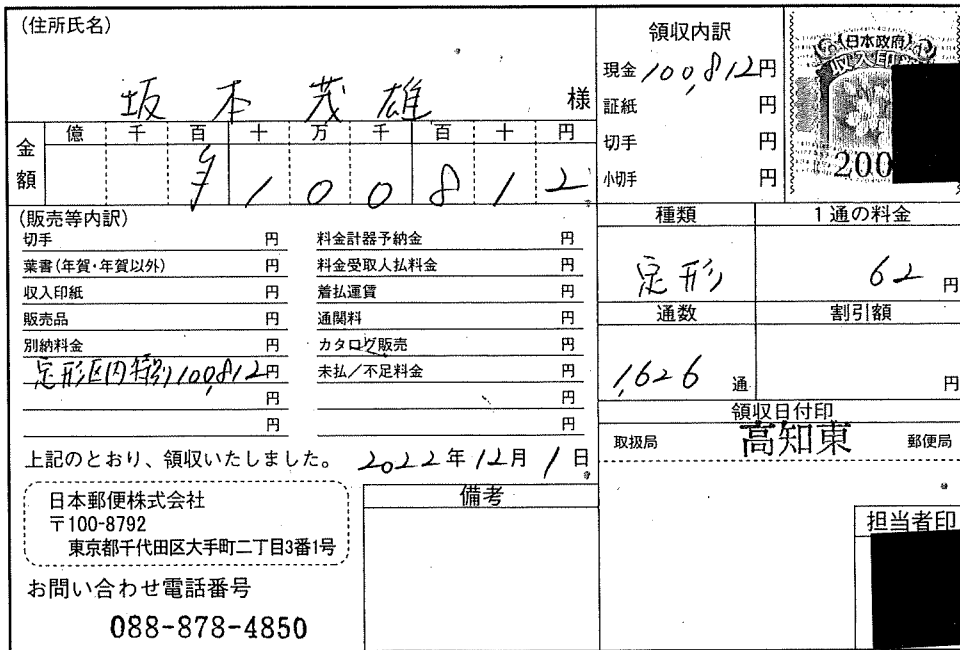 (住所氏名)
坂本茂雄 様
金額 億 千 百 十 万 千 百 十 円
¥ 1 0 0 8 1 2
(販売等内訳)
切手 円
葉書(年賀・年賀以外) 円
収入印紙 円
販売品 円
別納料金 円
定形区内特別 100,812円
円
円
料金計器予納金 円
料金受取人払料金 円
着払運賃 円
通関料 円
カタログ販売 円
未払/不足料金 円
円
円
上記のとおり、領収いたしました。 2022年12月1日
日本郵便株式会社
〒100-8792
東京都千代田区大手町二丁目3番1号
お問い合わせ電話番号
088-878-4850
備考
領収内訳
現金 100,812円
証紙 円
切手 円
小切手 円
日本政府
収入印
200
種類 1通の料金
定形 62 円
通数 割引額
1,626 通 円
領収日付印
取扱局 高知東 郵便局
担当者印